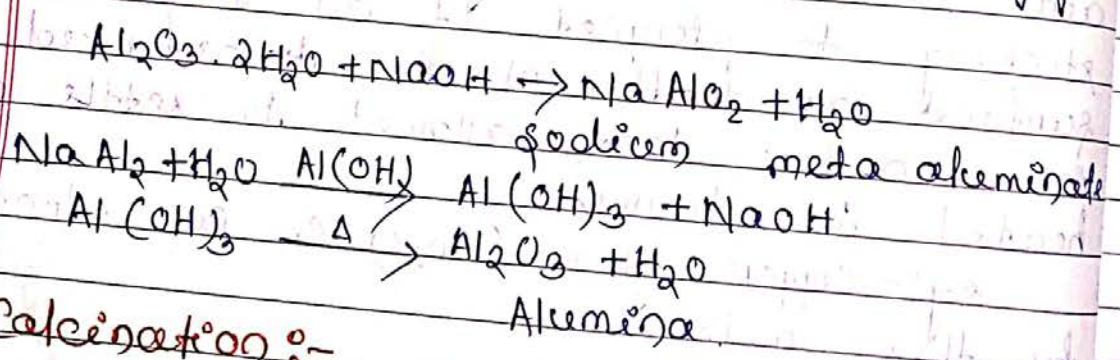 Al₂O₃ . 2H₂O + NaOH → Na AlO₂ + H₂O
Sodium meta aluminate
Na Al₂ + H₂O Al(OH) → Al(OH)₃ + NaOH
Al(OH)₃ Δ → Al₂O₃ + H₂O
Alumina
Calcination :-